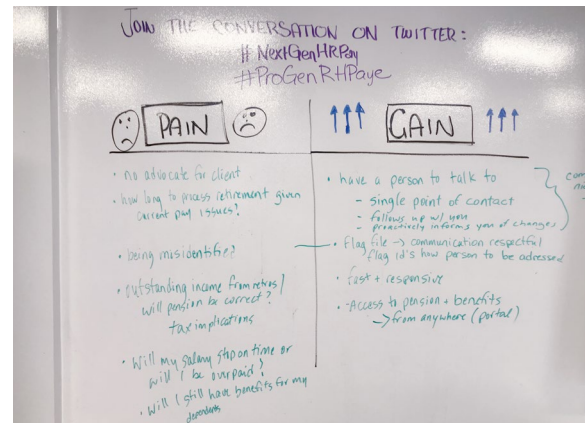 JOIN THE CONVERSATION ON TWITTER:
# NextGenHRPay
#ProGenRHPaye
PAIN
• no advocate for client
• how long to process retirement given
current pay issues?
• being misidentifie?
• outstanding income from retros/
will pension be correct?
tax implications
• Will my salary stop on time or
will I be overpaid?
• Will I still have benefits for my
dependents
GAIN
• have a person to talk to
- single point of contact
- follows up w/ you
- proactively informs you of changes
• Flag file → communication respectful
flag id's how person to be adressed
• fast + responsive
• Access to pension + benefits
→ from anywhere (portal)